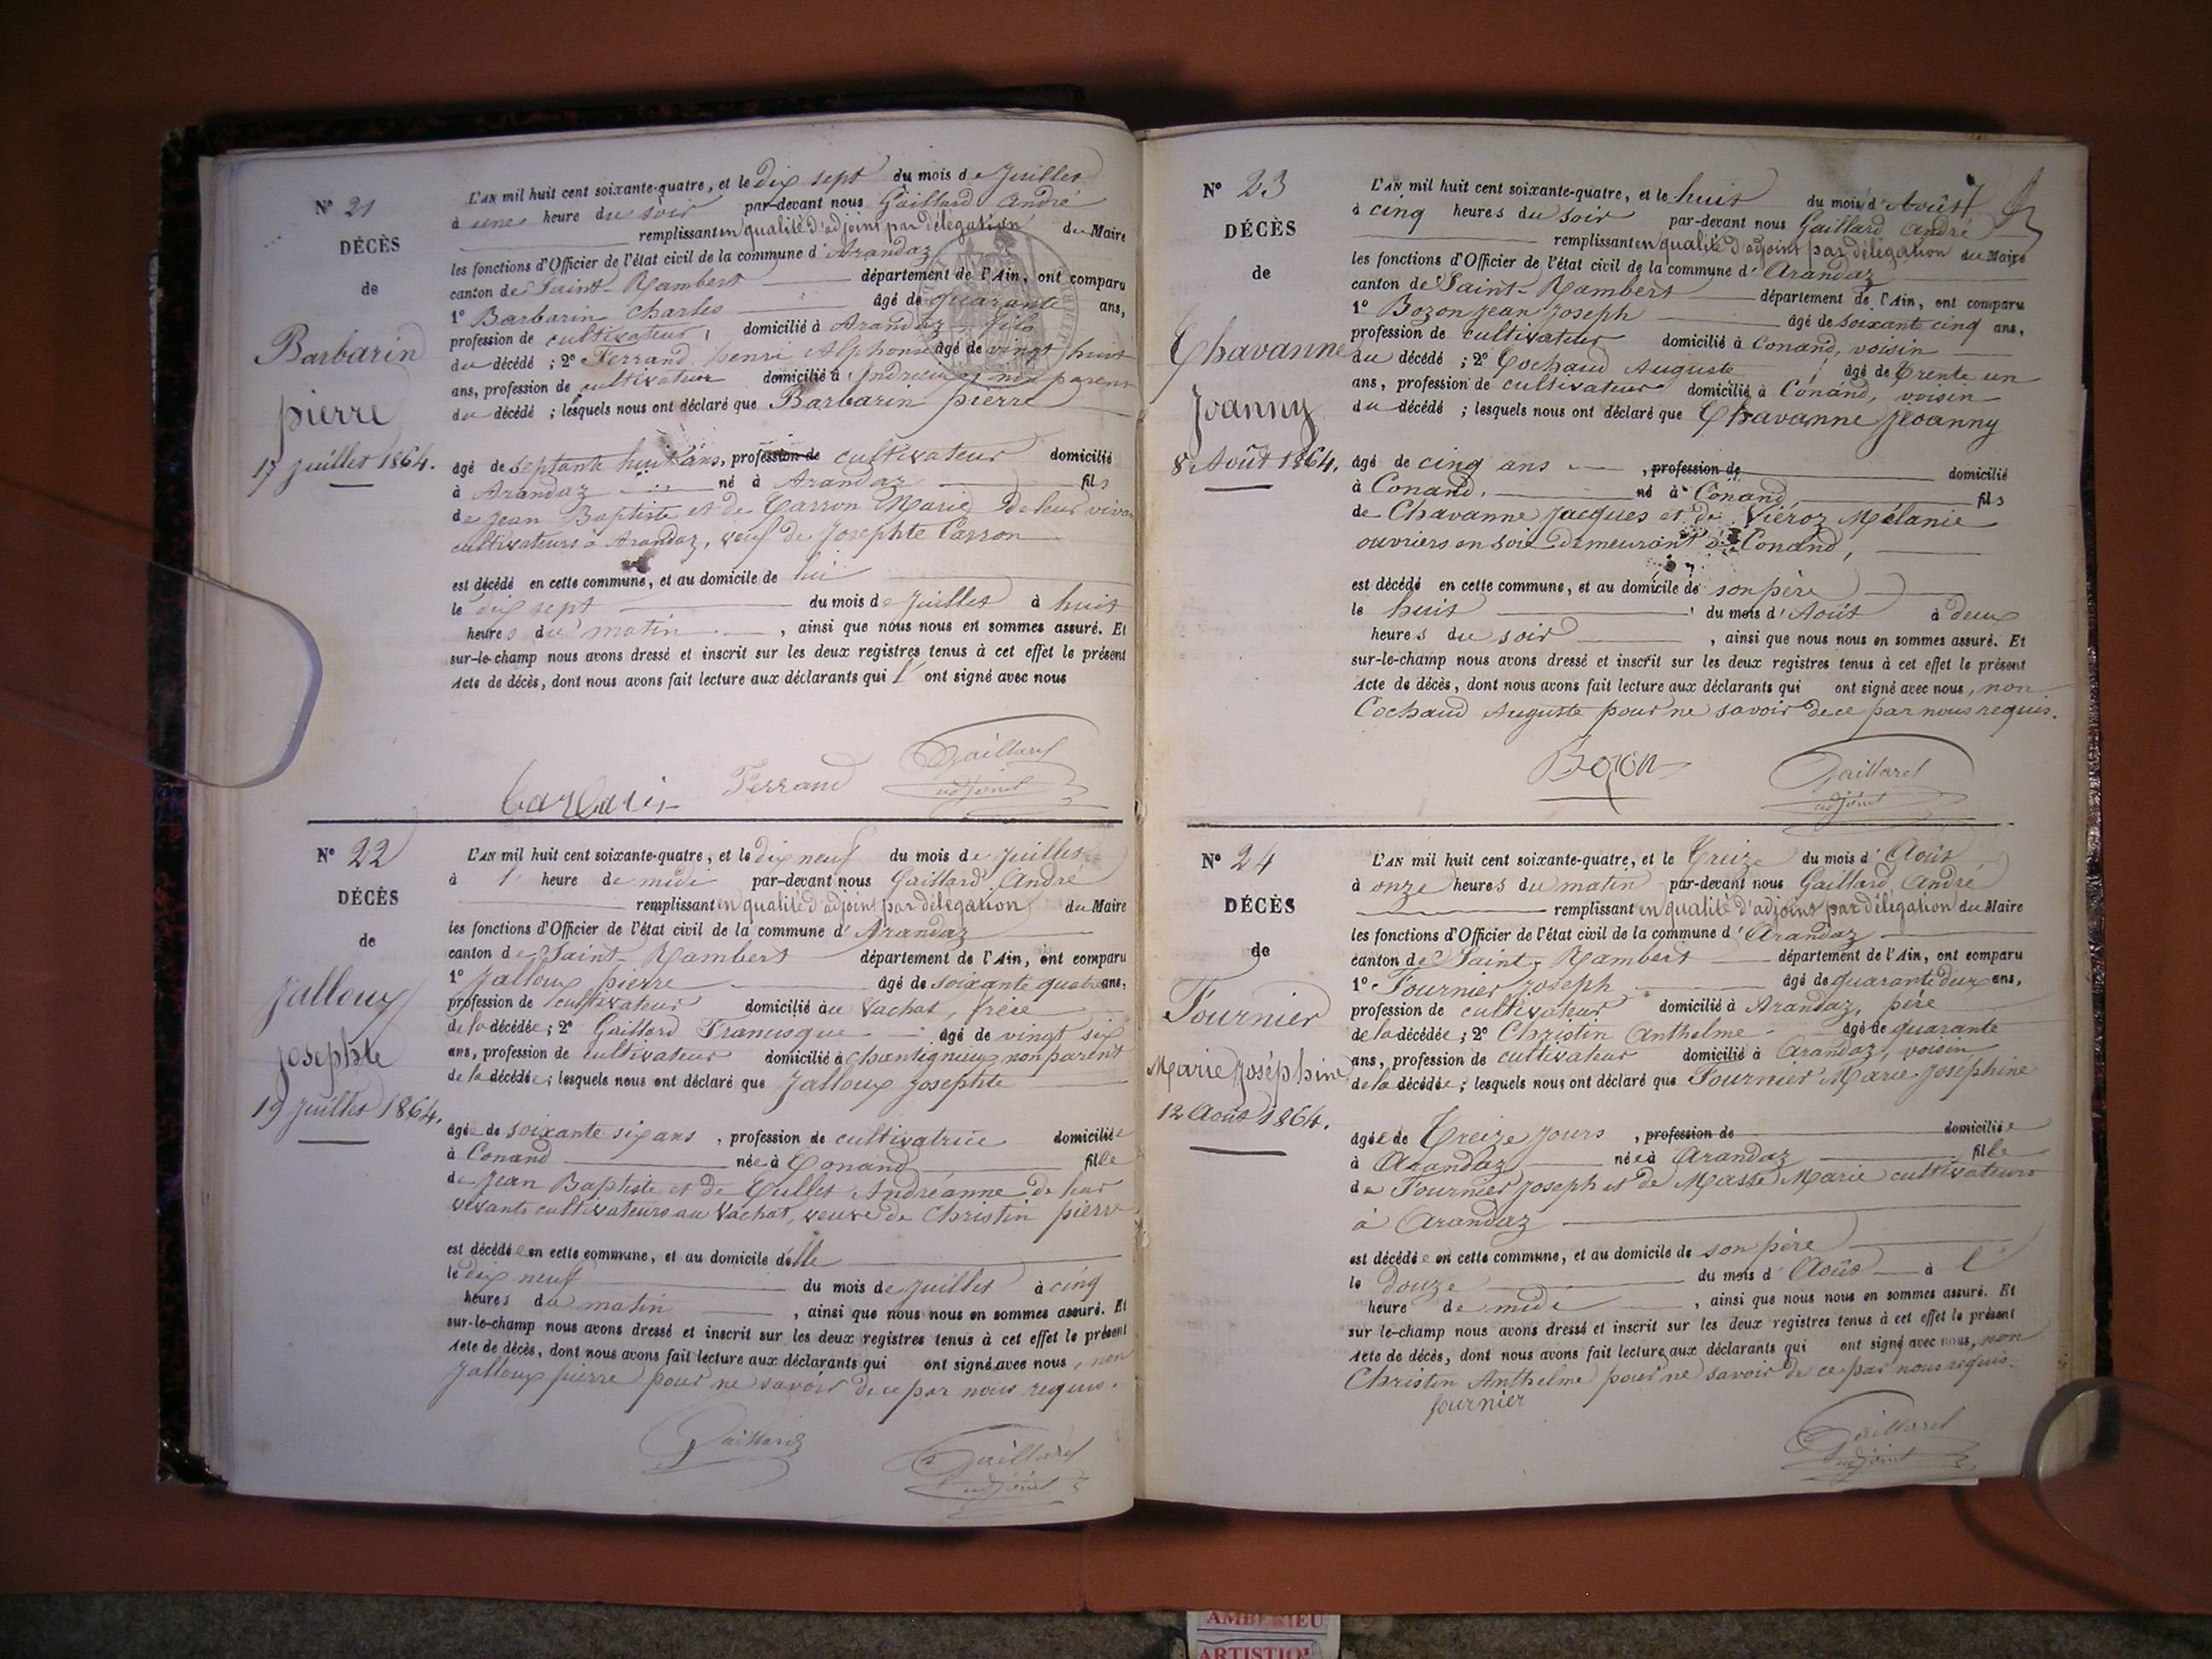 N° 21
DÉCÈS
de
Barbarin
pierre
17 Juillet 1864.
L'AN mil huit cent soixante-quatre, et le dix sept du mois de Juillet
à une heure du soir par-devant nous Gaillard André
remplissant en qualité d'adjoint par délégation du Maire
les fonctions d'Officier de l'état civil de la commune d'Arandaz
canton de Saint-Rambert département de l'Ain, ont comparu
1° Barbarin Charles âgé de quarante ans,
profession de cultivateur, domicilié à Arandaz fils
du décédé ; 2° Ferrand henri Alphonse âgé de vingt huit
ans, profession de cultivateur domicilié à Indrieux non parent
du décédé ; lesquels nous ont déclaré que Barbarin pierre
âgé de septante huit ans, profession de cultivateur domicilié
à Arandaz né à Arandaz fils
de Jean Baptiste et de Carron Marie de leur vivant
cultivateurs à Arandaz, veuf de Josephte Carron
est décédé en cette commune, et au domicile de lui
le dix sept du mois de Juillet à huit
heures du matin, ainsi que nous nous en sommes assuré. Et
sur-le-champ nous avons dressé et inscrit sur les deux registres tenus à cet effet le présent
Acte de décès, dont nous avons fait lecture aux déclarants qui l' ont signé avec nous
barbarin Ferrand Gaillard
adjoint
N° 22
DÉCÈS
de
Jalloux
josephte
19 Juillet 1864.
L'AN mil huit cent soixante-quatre, et le dix neuf du mois de Juillet
à l' heure de midi par-devant nous Gaillard André
remplissant en qualité d'adjoint par délégation du Maire
les fonctions d'Officier de l'état civil de la commune d'Arandaz
canton de Saint-Rambert département de l'Ain, ont comparu
1° Jalloux pierre âgé de soixante quatre ans,
profession de cultivateur domicilié au Vachat, frère
de la décédée ; 2° Gaillard Francisque âgé de vingt six
ans, profession de cultivateur domicilié à Chantigneux non parent
de la décédée ; lesquels nous ont déclaré que Jalloux Josephte
âgée de soixante six ans, profession de cultivatrice domiciliée
à Conand née à Conand fille
de Jean Baptiste et de Cullet Andréanne de leur
vivants cultivateurs au Vachat, veuve de Christin pierre
est décédée en cette commune, et au domicile d'elle
le dix neuf du mois de Juillet à cinq
heures du matin, ainsi que nous nous en sommes assuré. Et
sur-le-champ nous avons dressé et inscrit sur les deux registres tenus à cet effet le présent
Acte de décès, dont nous avons fait lecture aux déclarants qui ont signé avec nous, non
Jalloux pierre pour ne savoir de ce par nous requis.
Gaillard Gaillard
adjoint
N° 23
DÉCÈS
de
Chavanne
Joanny
8 Août 1864.
L'AN mil huit cent soixante-quatre, et le huit du mois d'Août
à cinq heures du soir par-devant nous Gaillard André
remplissant en qualité d'adjoint par délégation du Maire
les fonctions d'Officier de l'état civil de la commune d'Arandaz
canton de Saint-Rambert département de l'Ain, ont comparu
1° Bozon Jean Joseph âgé de soixante cinq ans,
profession de cultivateur domicilié à Conand, voisin
du décédé ; 2° Cochaud Auguste âgé de trente un
ans, profession de cultivateur domicilié à Conand, voisin
du décédé ; lesquels nous ont déclaré que Chavanne Joanny
âgé de cinq ans, profession de domicilié
à Conand, né à Conand, fils
de Chavanne Jacques et de Viéroz Mélanie
ouvriers en soie demeurant à Conand,
est décédé en cette commune, et au domicile de son père
le huit du mois d'Août à deux
heures du soir, ainsi que nous nous en sommes assuré. Et
sur-le-champ nous avons dressé et inscrit sur les deux registres tenus à cet effet le présent
Acte de décès, dont nous avons fait lecture aux déclarants qui ont signé avec nous, non
Cochaud Auguste pour ne savoir de ce par nous requis.
Bozon Gaillard
adjoint
N° 24
DÉCÈS
de
Fournier
Marie Joséphine
12 Août 1864.
L'AN mil huit cent soixante-quatre, et le treize du mois d'Août
à onze heures du matin par-devant nous Gaillard André
remplissant en qualité d'adjoint par délégation du Maire
les fonctions d'Officier de l'état civil de la commune d'Arandaz
canton de Saint-Rambert département de l'Ain, ont comparu
1° Fournier Joseph âgé de quarante deux ans,
profession de cultivateur domicilié à Arandaz, père
de la décédée ; 2° Christin Anthelme âgé de quarante
ans, profession de cultivateur domicilié à Arandaz, voisin
de la décédée ; lesquels nous ont déclaré que Fournier Marie Joséphine
âgée de treize jours, profession de domiciliée
à Arandaz née à Arandaz fille
de Fournier Joseph et de Masse Marie cultivateurs
à Arandaz
est décédée en cette commune, et au domicile de son père
le douze du mois d'Août à l'
heure de midi, ainsi que nous nous en sommes assuré. Et
sur-le-champ nous avons dressé et inscrit sur les deux registres tenus à cet effet le présent
Acte de décès, dont nous avons fait lecture aux déclarants qui ont signé avec nous, non
Christin Anthelme pour ne savoir de ce par nous requis.
fournier Gaillard
adjoint
AMBERIEU
ARTISTIQ